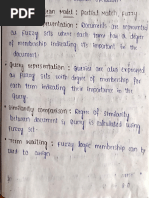 model : Partial match, fuzzy
representation : Documents are represented
as fuzzy sets where each term has a degree
of membership indicating its importance in the
document.
Query representation : Queries are also expressed
as fuzzy sets with degree of membership for
each term indicating their importance in the
query.
Similarity comparison : Degree of similarity
between document & query is calculated using
fuzzy set
Term weighting : Fuzzy logic membership can be
used to assign.